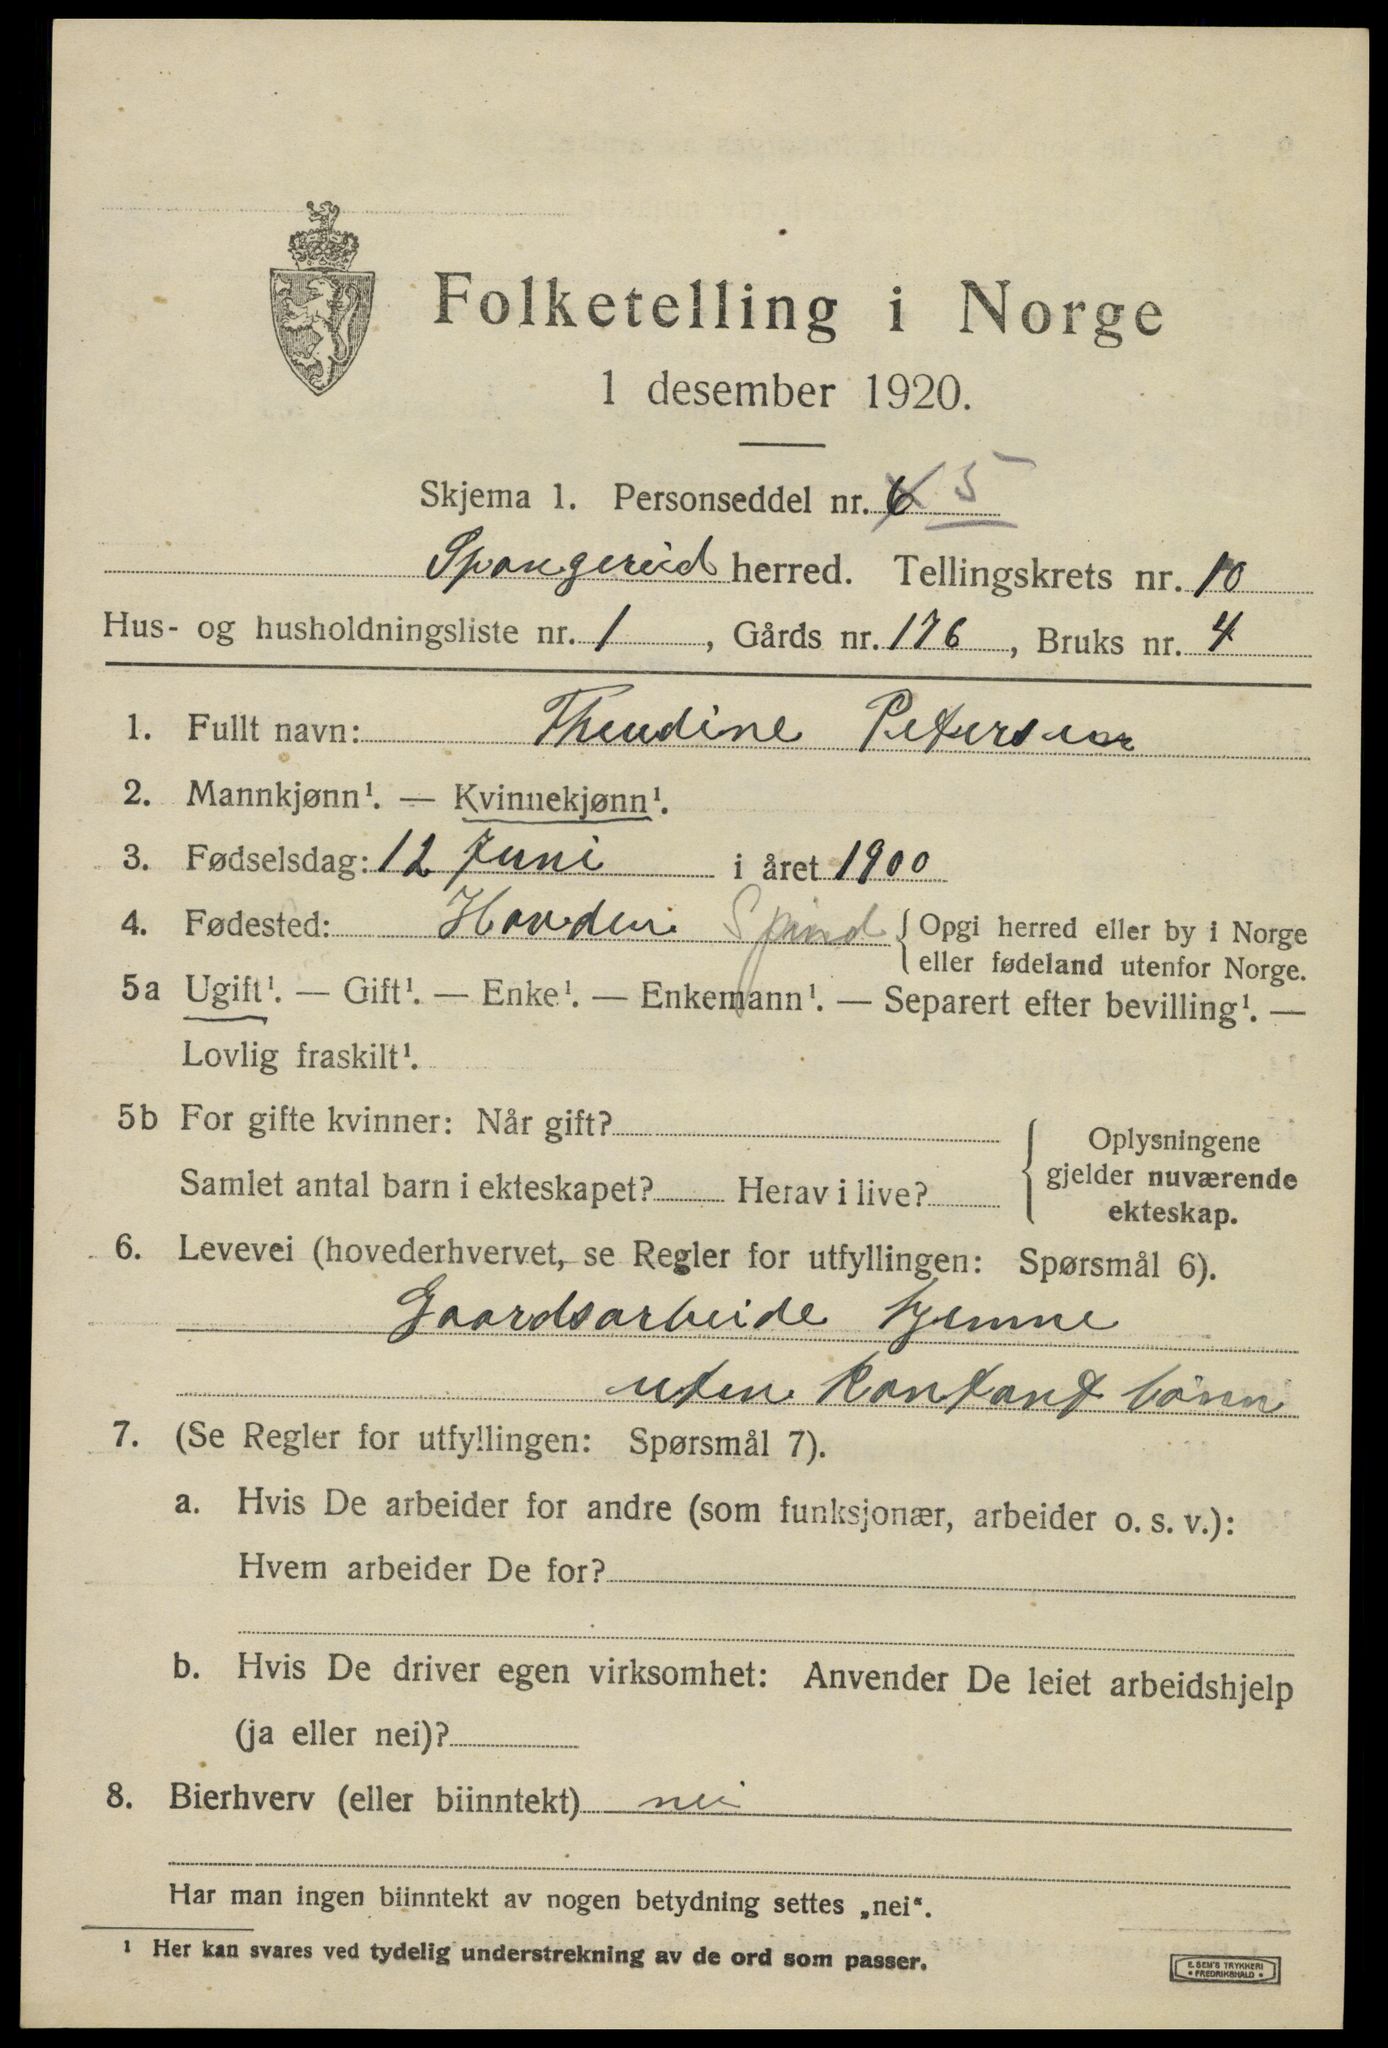 Folketelling i Norge
1 desember 1920.
Skjema 1. Personseddel nr. 6 5
Spangereid herred. Tellingskrets nr. 10
Hus- og husholdningsliste nr. 1, Gårds nr. 176, Bruks nr. 4
1. Fullt navn: Theudine Petersen
2. Mannkjønn¹. — Kvinnekjønn¹.
3. Fødselsdag: 12 Juni i året 1900
4. Fødested: Hovden Spind { Opgi herred eller by i Norge
eller fødeland utenfor Norge.
5a Ugift¹. — Gift¹. — Enke¹. — Enkemann¹. — Separert efter bevilling¹. —
Lovlig fraskilt¹.
5b For gifte kvinner: Når gift?
Samlet antal barn i ekteskapet? Herav i live?
Oplysningene
gjelder nuværende
ekteskap.
6. Levevei (hovederhvervet, se Regler for utfyllingen: Spørsmål 6).
Gaardsarbeide hjemme
uten kontant lønn
7. (Se Regler for utfyllingen: Spørsmål 7).
a. Hvis De arbeider for andre (som funksjonær, arbeider o. s. v.):
Hvem arbeider De for?
b. Hvis De driver egen virksomhet: Anvender De leiet arbeidshjelp
(ja eller nei)?
8. Bierhverv (eller biinntekt) nei
Har man ingen biinntekt av nogen betydning settes „nei“.
¹ Her kan svares ved tydelig understrekning av de ord som passer.
E. SEM'S TRYKKERI
• FREDRIKSHALD •